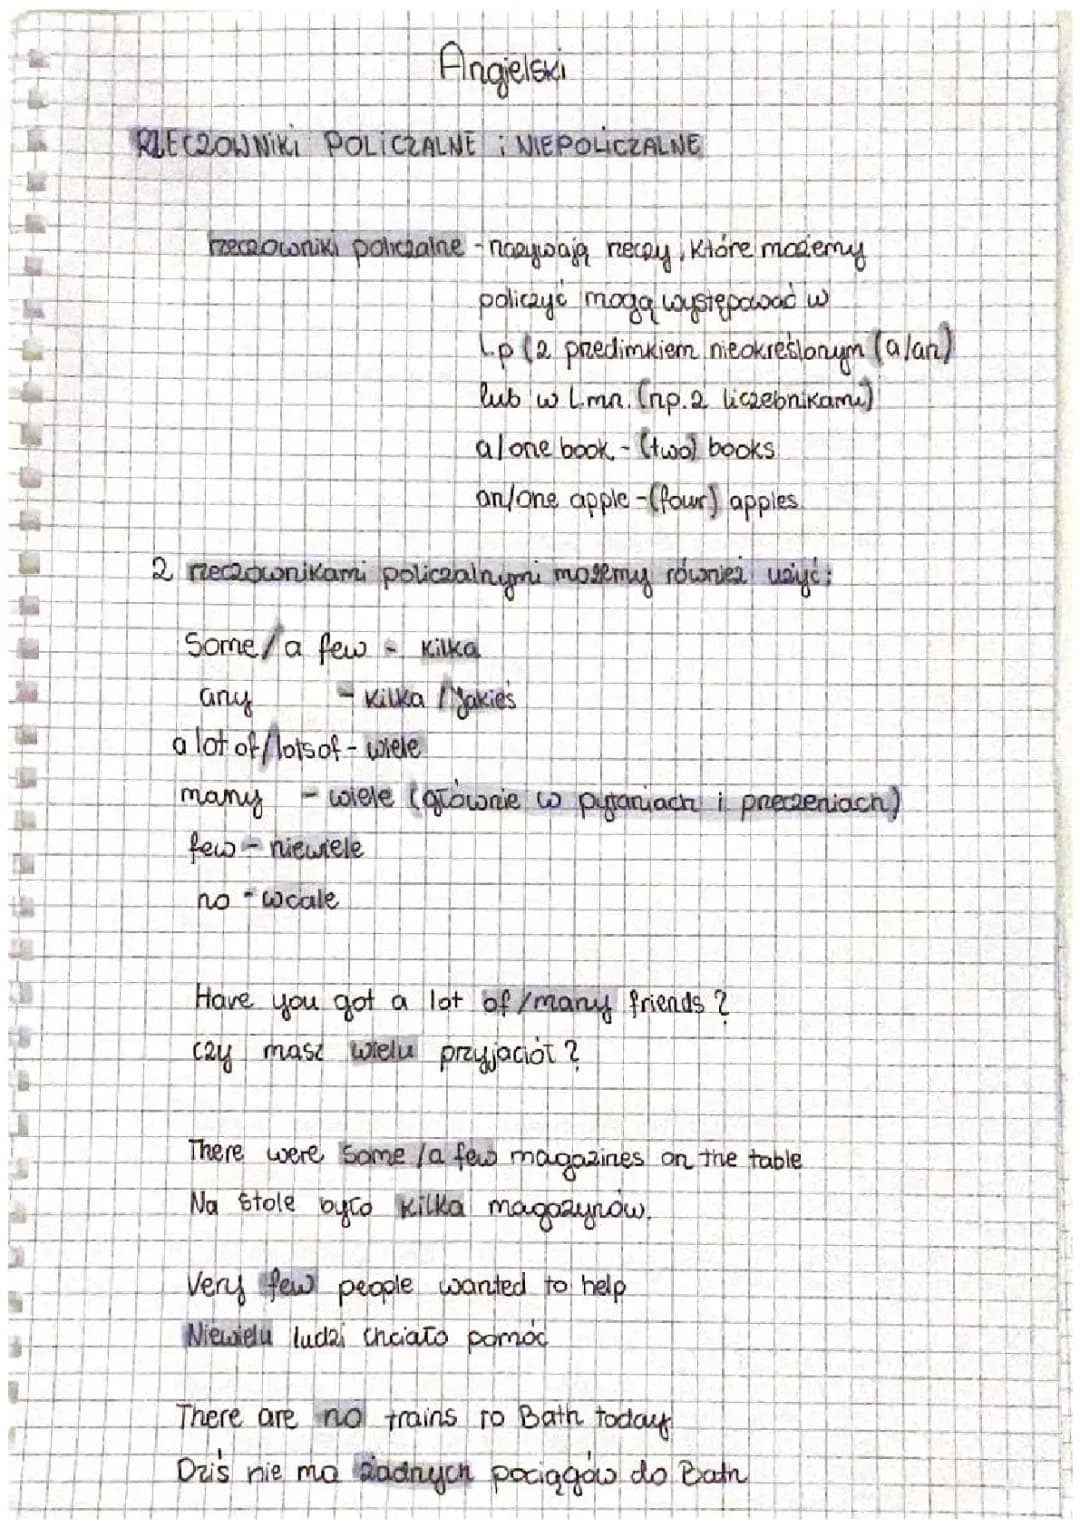 Angielski
RZECZOWNIKI POLICZALNE i NIEPOLICZALNE
rzeczowniki policzalne - nazywają rzeczy, które możemy
policzyć mogą występować w
l.p (z przedimkiem nieokreślonym (a/an)
lub w l.mn. (np. z liczebnikami)
a/one book - (two) books
an/one apple - (four) apples.
Z rzeczownikami policzalnymi możemy również użyć:
Some/a few - kilka
any - kilka / jakieś
a lot of/lots of - wiele
many - wiele (głównie w pytaniach i przeczeniach)
few - niewiele
no - wcale
Have you got a lot of/many friends?
Czy masz wielu przyjaciół?
There were some/a few magazines on the table
Na stole było kilka magazynów.
Very few people wanted to help
Niewielu ludzi chciało pomóc
There are no trains to Bath today
Dziś nie ma żadnych pociągów do Bath